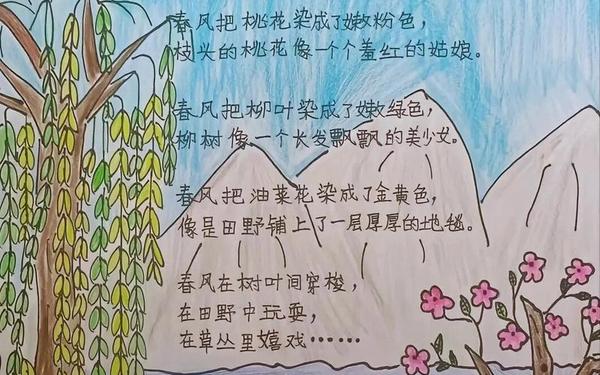 春风把桃花染成了嫩粉色，
枝头的桃花像一个个羞红的姑娘。
春风把柳叶染成了嫩绿色，
柳树像一个长发飘飘的美少女。
春风把油菜花染成了金黄色，
像是田野铺上了一层厚厚的地毯。
春风在树叶间穿梭，
在田野中玩耍，
在草丛里嬉戏……